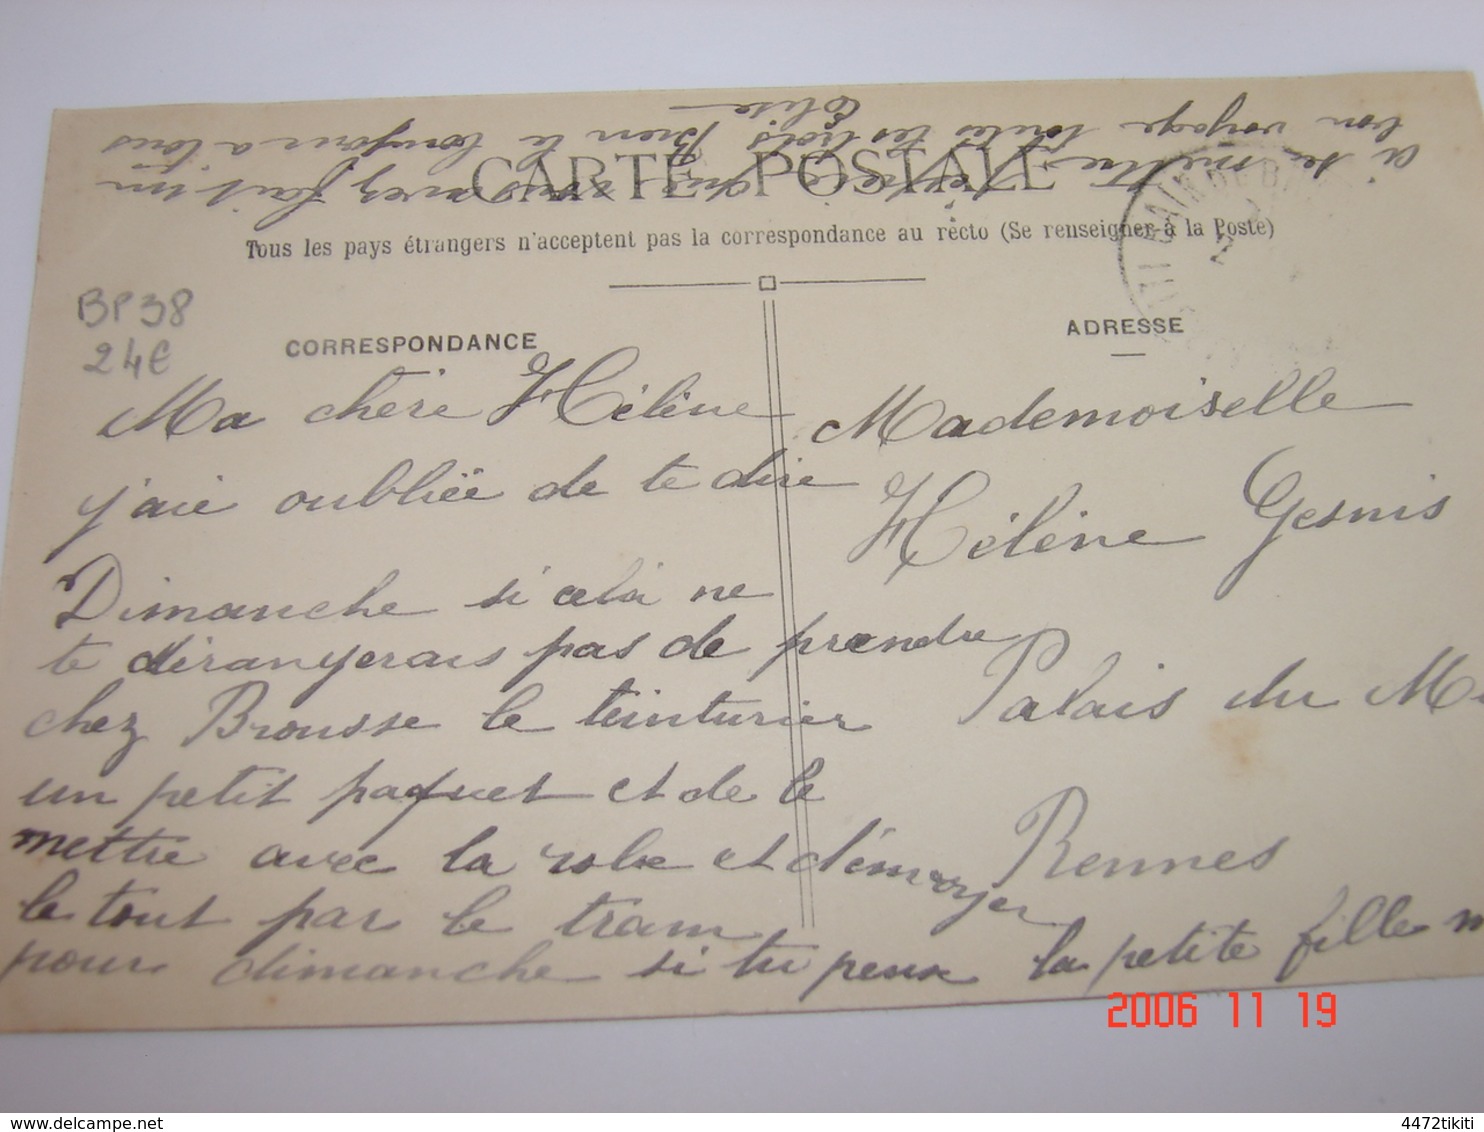 CARTE POSTALE
Tous les pays étrangers n'acceptent pas la correspondance au recto (Se renseigner à la Poste)
BP38
24€
CORRESPONDANCE
Ma chère Hélène
j'aie oubliée de te dire
Dimanche si celà ne
te dérangerais pas de prendre
chez Brousse le teinturier
un petit paquet et de le
mettre avec la robe et
le tout par le tram
pour dimanche si tu peux la petite fille
a se mettre
vous avez fait un
bon voyage toutes les trois Bien le bonjour a tous
Elise
ADRESSE
Mademoiselle
Hélène Gesnis
Palais du M
Rennes
2006 11 19
delcampe.net
4472tikiti